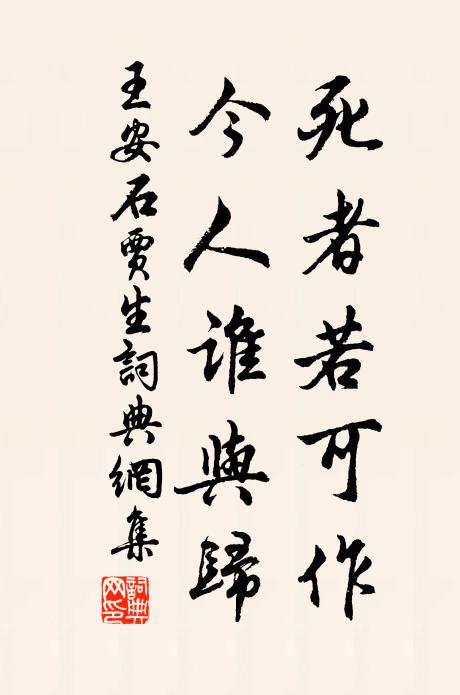 死者若可作
今人誰與歸
王安石賈生詞典網集
詞典
网印